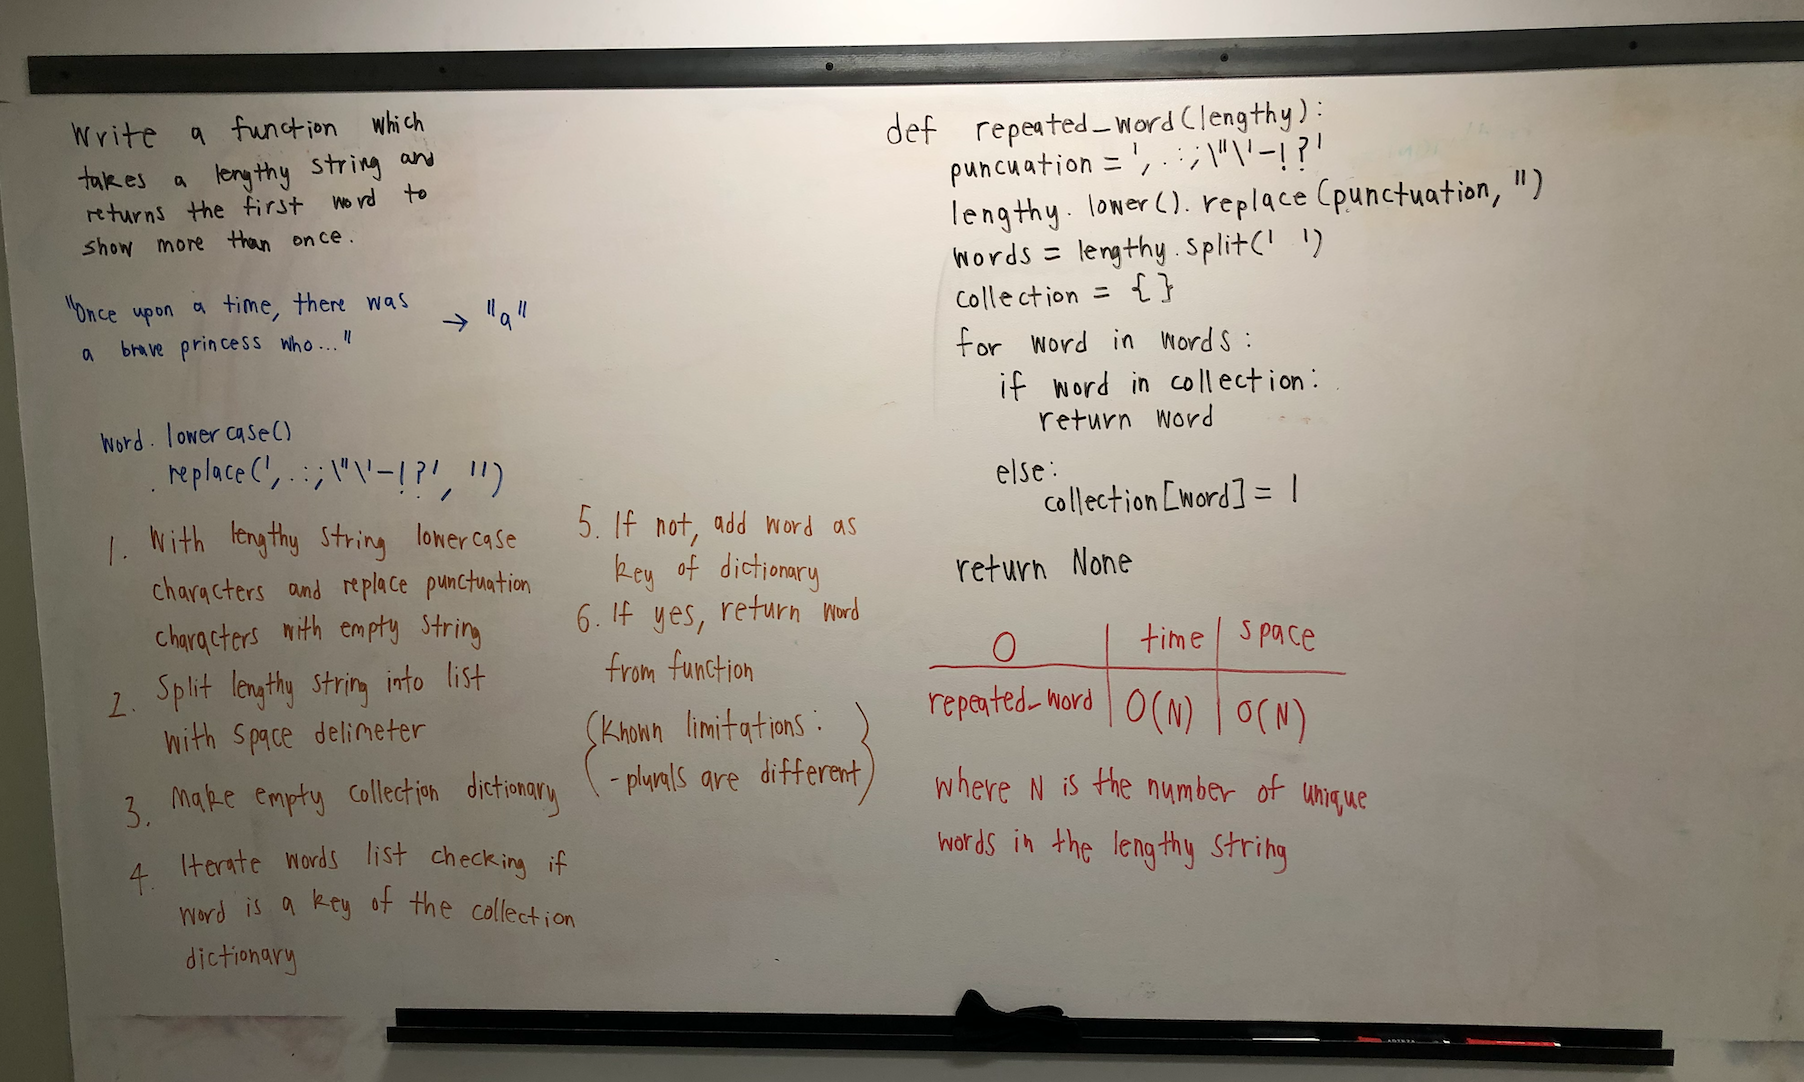 Write a function which
takes a lengthy string and
returns the first word to
show more than once.
"Once upon a time, there was
a brave princess who..."
→ "a"
word.lowercase()
.replace(',.:;\"\'-!?', '')
1. With lengthy string lowercase
characters and replace punctuation
characters with empty string
2. Split lengthy string into list
with space delimeter
3. Make empty collection dictionary
4. Iterate words list checking if
word is a key of the collection
dictionary
5. If not, add word as
key of dictionary
6. If yes, return word
from function
(Known limitations:
- plurals are different)
def repeated_word(lengthy):
puncuation = ',.:;\"\'-!?'
lengthy.lower().replace(punctuation, '')
words = lengthy.split(' ')
collection = {}
for word in words:
if word in collection:
return word
else:
collection[word] = 1
return None
O | time | space
repeated_word | O(N) | O(N)
where N is the number of unique
words in the lengthy string